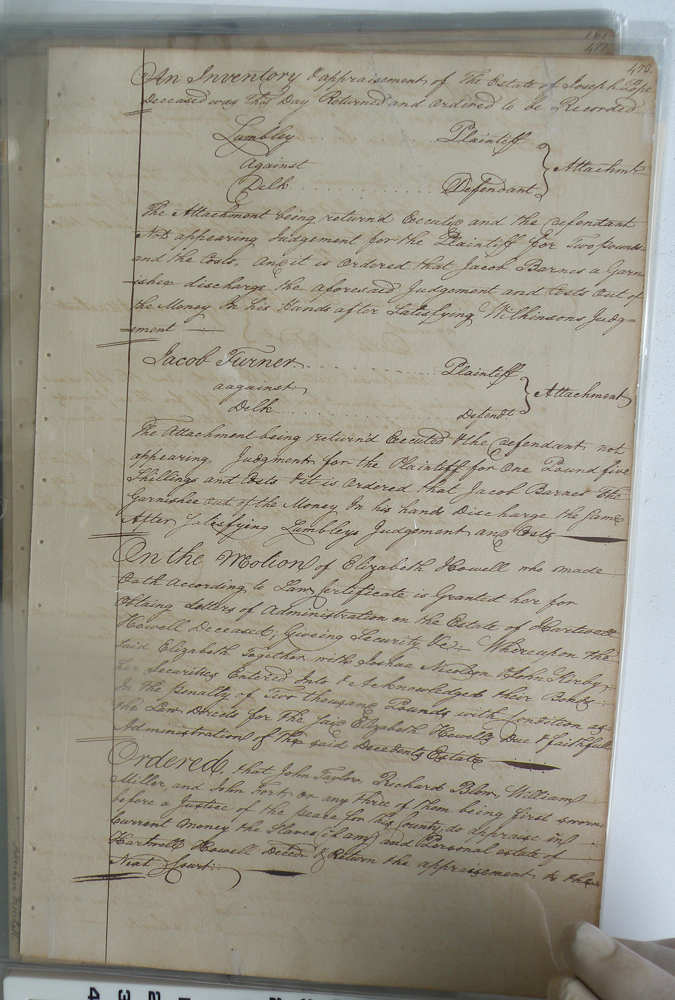 470.
An Inventory & appraisement of The Estate of Joseph Pope
Deceased was This Day Returned and Ordered to be Recorded
Lumbley Plaintiff
against } Attachmt
Delk Defendant
The Attachment being return'd Executed and the Defendant
Not appearing Judgement for the Plaintiff for Two pounds
and the Costs. And it is Ordered that Jacob Barnes a Garn
ishee discharge the aforesaid Judgement and Costs Out of
the Money In his Hands after Satisfying Wilkinsons Judg=
=ment
Jacob Turner Plaintiff
aagainst } Attachment
Delk Defendt
The Attachment being return'd Executed & the Defendant not
appearing Judgment for the Plaintiff for One Pound five
Shillings and Costs & it is Ordered that Jacob Barnes The
Garnishee out of the Money In his hands Discharge the same
After Satisfying Lumbleys Judgement and Costs
On the Motion of Elizabeth Howell who made
Oath According to Law Certificate is Granted her for
Obtaing Letters of Administration on the Estate of Hartwell
Howell Deceased; Giveing Security &c. Whereupon the
Said Elizabeth Together with Joshua Nicolson & John Kirby
her Securities Entered Into & Acknowledged their Bonds
In the penalty of Two thousand Pounds with Condition as
the Law Directs for The said Elizabeth Howells Due & faithfull
Administration of the said Decedents Estate
Ordered, that John Taylor, Richard Blow, William
Miller, and John Fort or any three of them being first sworn
before a Justice of the peace for this County do appraise in
Current Money the Slaves if any and Personal estate of
Hartwell Howell Deced & Return the appraisement to the
Next Court